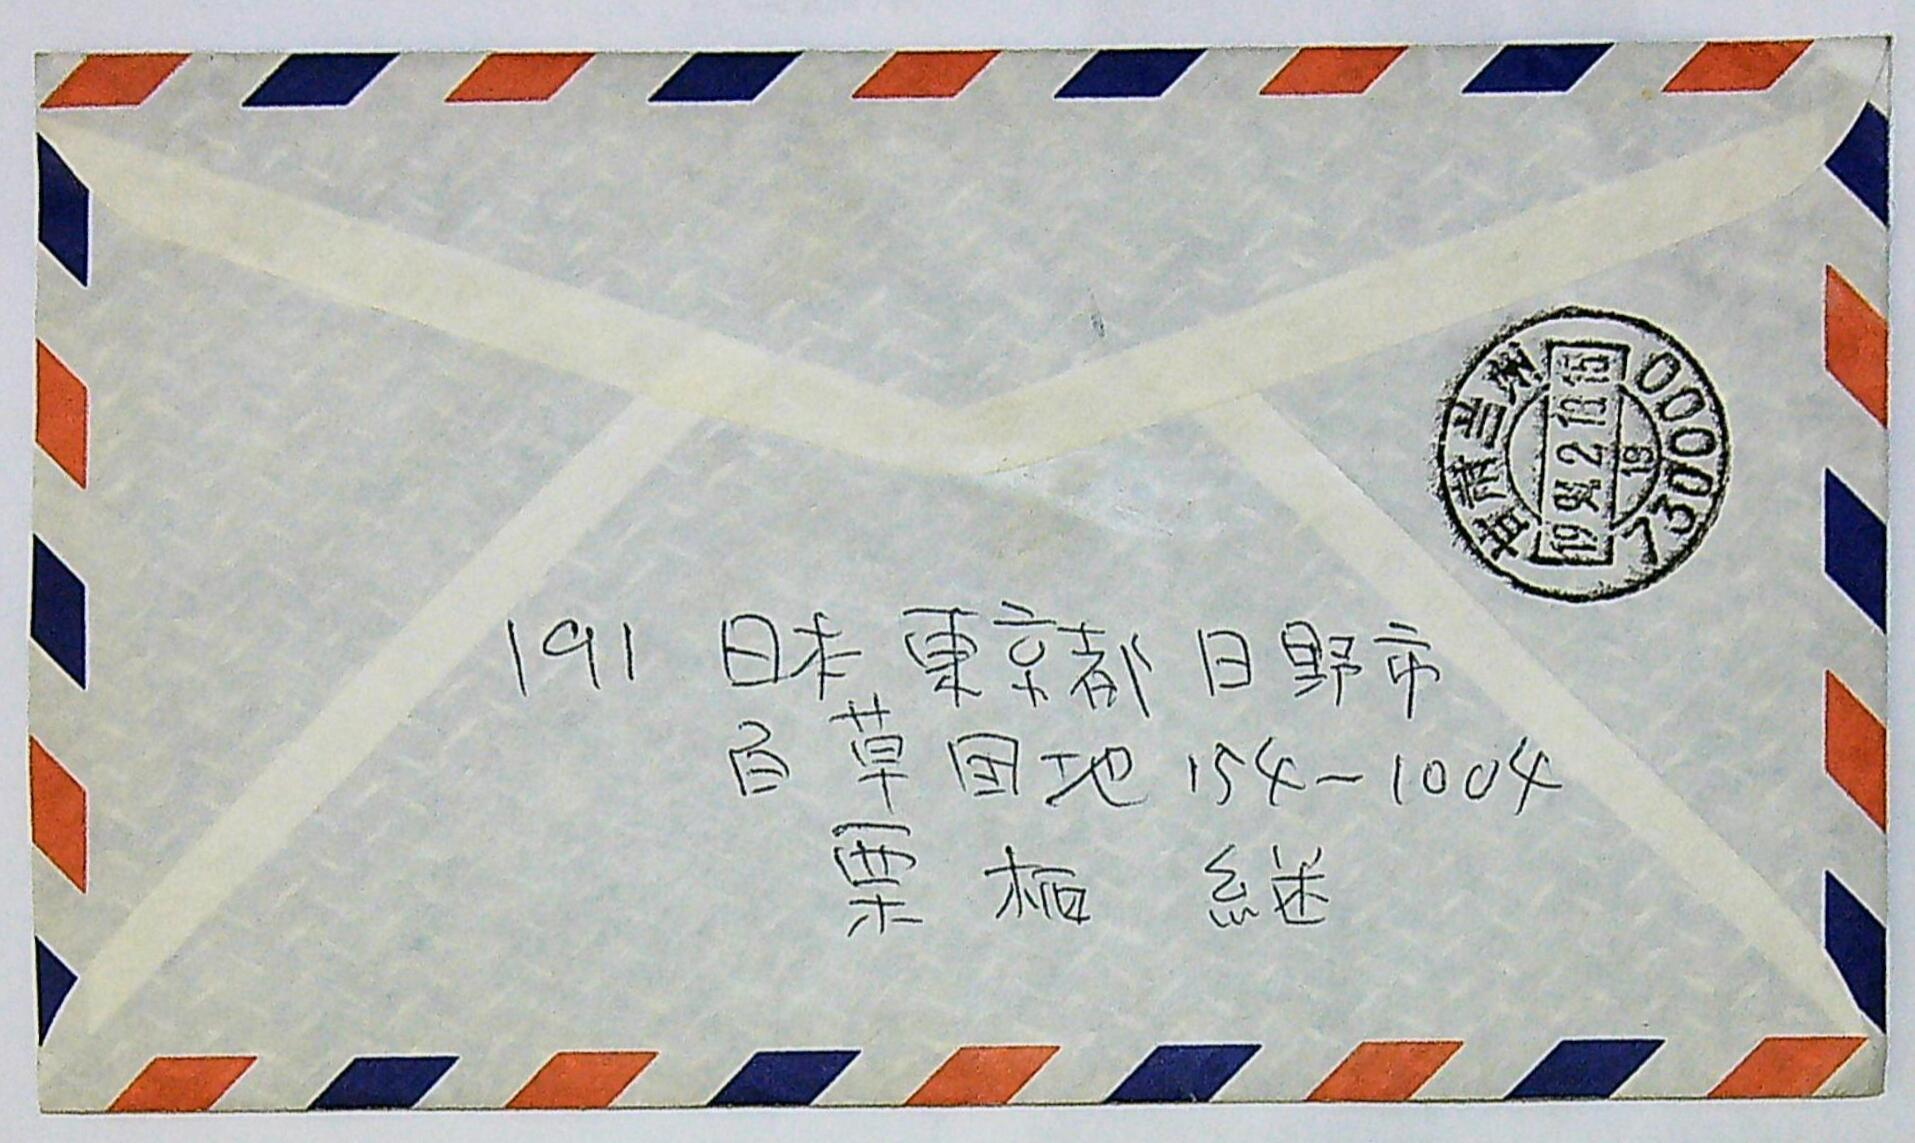 甘肃兰州
730000
1994.2.18.15
19
191 日本東京都日野市
百草団地154~1004
栗栖 継